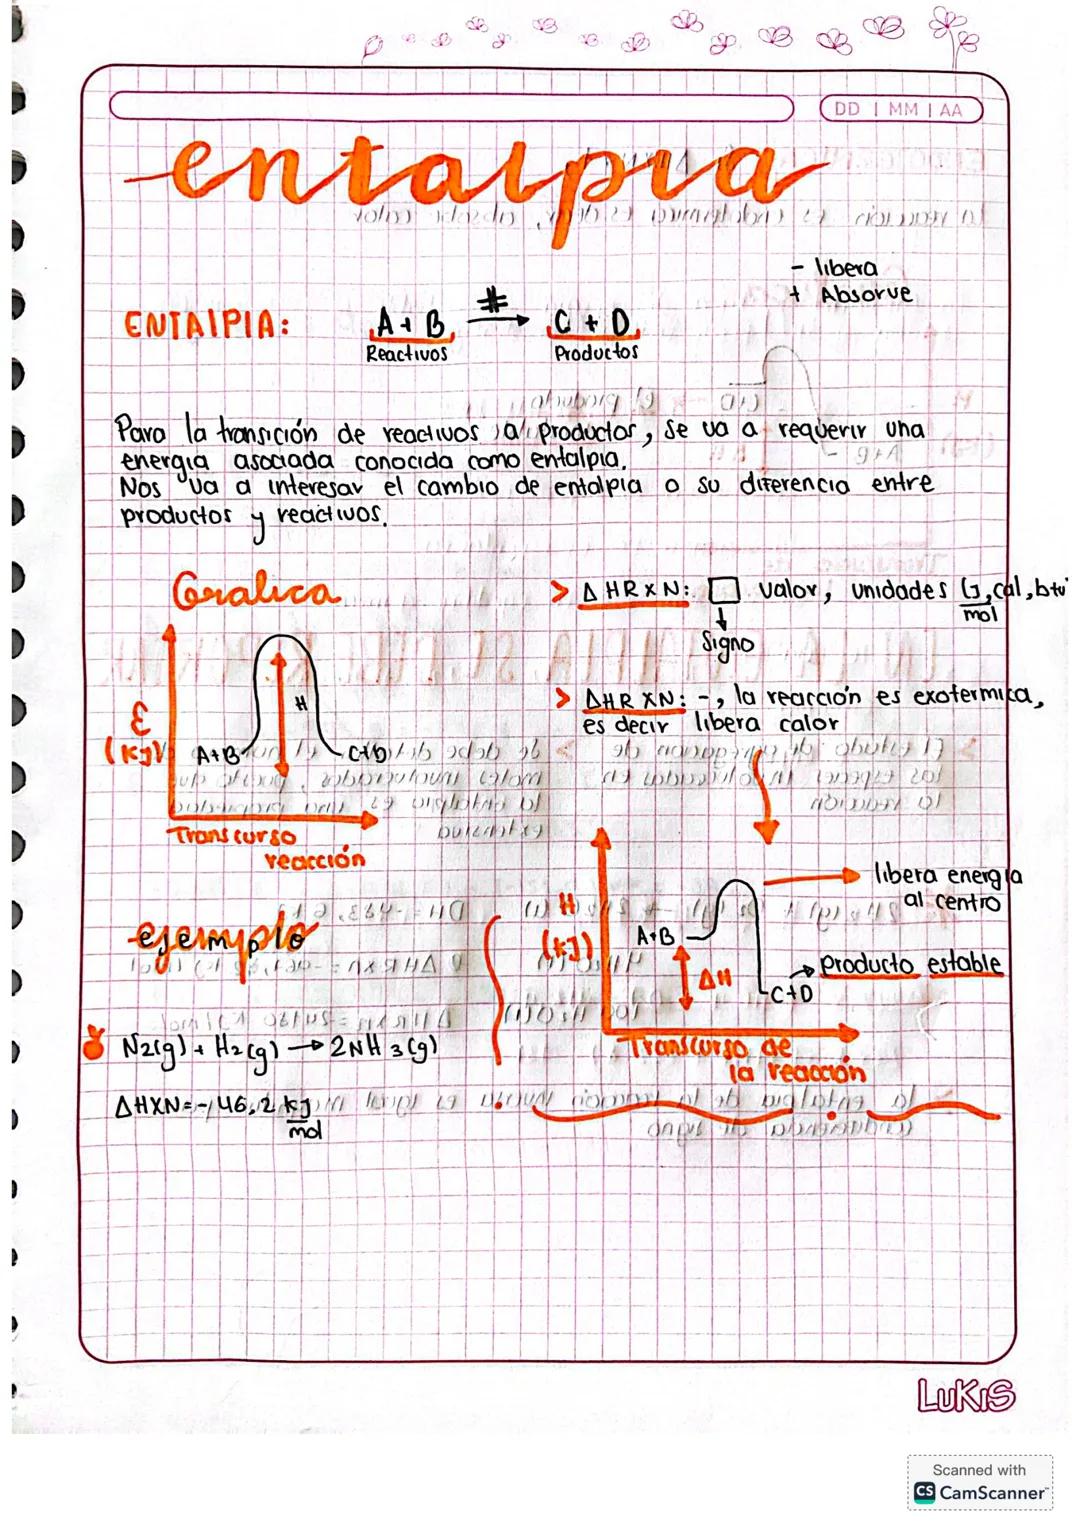 DD | MM | AA
entalpia
- libera
+ Absorve
ENTAlPIA: A + B # → C + D
Reactivos Productos
Para la transición de reactivos a productos, se va a requerir una
energia asociada conocida como entalpia.
Nos va a interesar el cambio de entalpia o su diferencia entre
productos y reactivos.
Grafica
> Δ HRXN: □ valor, unidades (J, cal, btu
mol
↓
Signo
> ΔHRXN: -, la reacción es exotermica,
es decir libera calor
E
(KJ)
H
A+B
C+D
Transcurso
reacción
H
(kJ)
A+B
ΔH
C+D
libera energia
al centro
→ producto estable
Transcurso de
la reacción
ejemplo
N2(g) + H2(g) → 2NH3(g)
ΔHXN = -46,2 kJ
mol
LUKIS
Scanned with
CS CamScanner